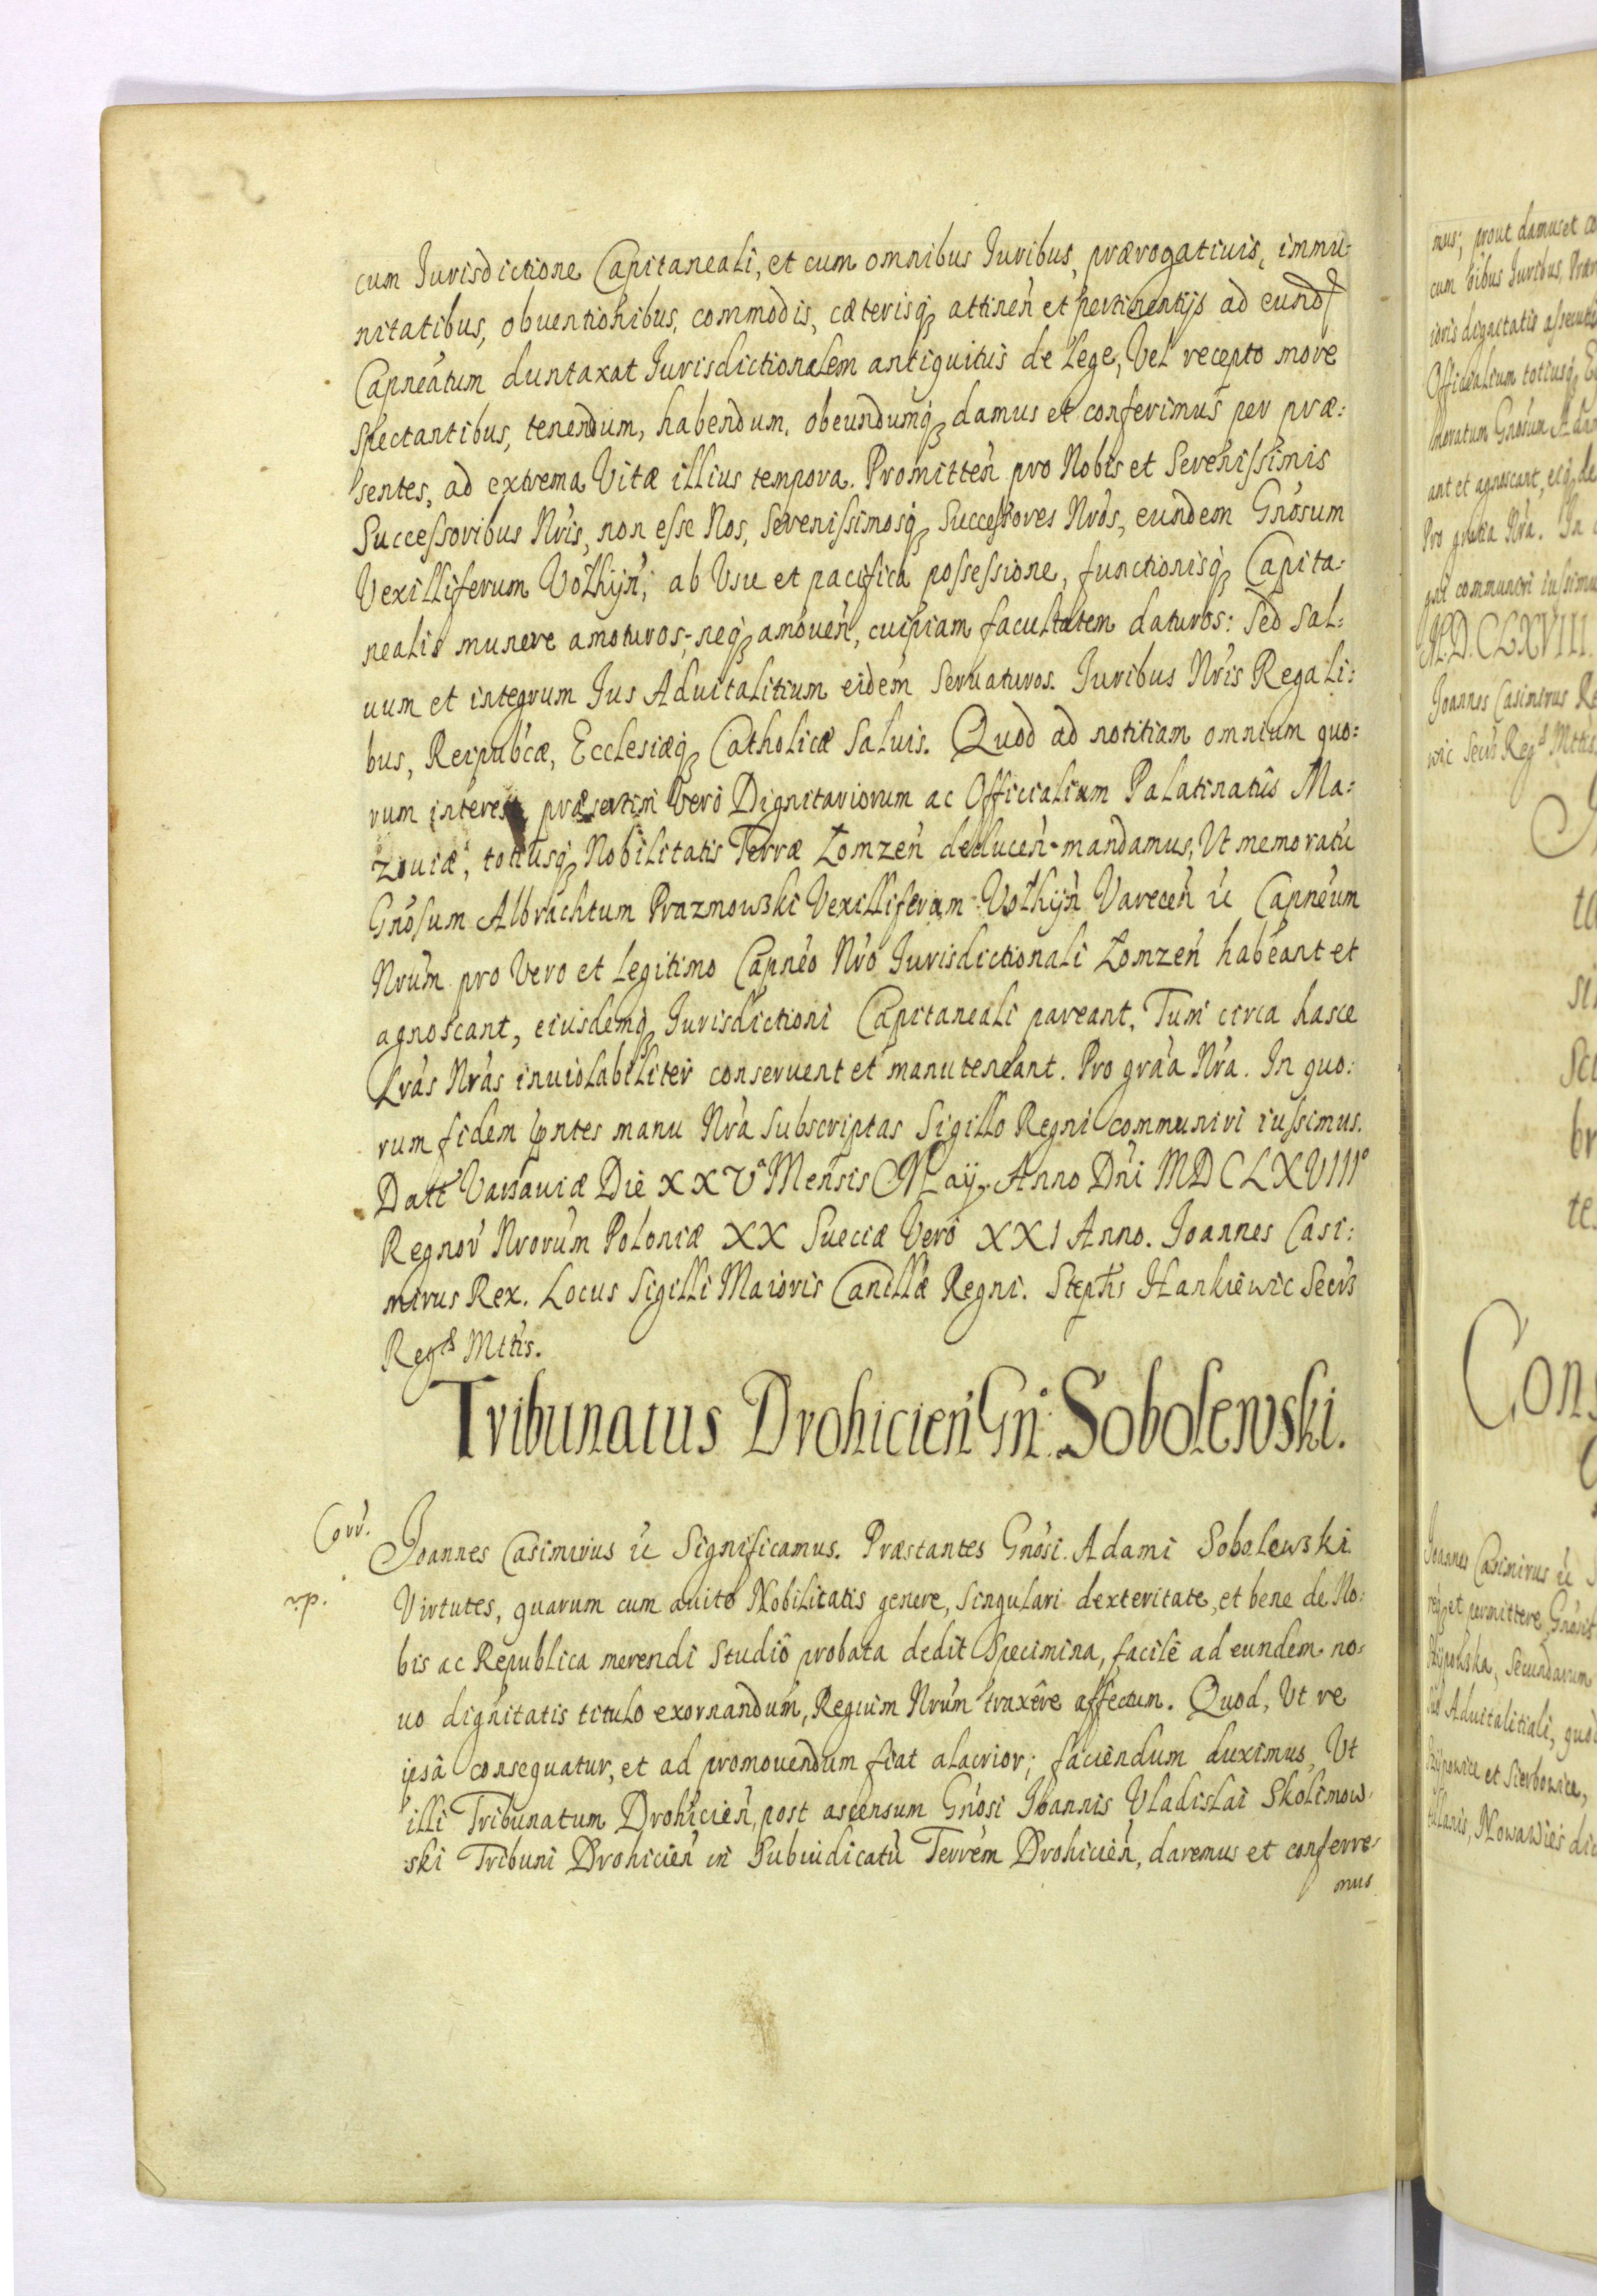 cum Jurisdictione Capitaneali, et cum omnibus Juribus, prærogatiuis, immu:
nitatibus, obuentionibus, commodis, cæterisq attineñ et pertinentijs ad eund
Capneatum duntaxat Jurisdictionalem antiquitus de Lege, Vel recepto more
spectantibus, tenendum, habendum, obeundumq damus et conferimus per præ:
sentes, ad extrema Vitæ illius tempora. Promitteñ pro Nobis et Serenissimis
Successoribus Nris, non esse Nos, Serenissimosq Successores Nros, eundem Gnosum
Vexilliferum Volhyñ, ab Vsu et pacifica possessione, functionisq Capita:
nealis munere amoturos, neq amoueñ, cuipiam facultatem daturos: Sed Sal:
uum et integrum Jus Aduitalitium eidem Seruaturos. Juribus Nris Regali:
bus, Reipubcæ, Ecclesiæq Catholicæ Saluis. Quod ad notitiam omnium quo:
rum interest, præsertim Vero Dignitariorum ac Officialium Palatinatûs Ma:
zouiæ, totiusq Nobilitatis Terræ Łomzeñ deduceñ mandamus, Vt memoratu
Gnosum Albrachtum Prazmowski Vexilliferum Volhyñ Vareceñ ẽt Capneum
Nrum pro Vero et Legitimo Capneo Nro Jurisdictionali Łomzeñ habeant et
agnoscant, eiusdemq Jurisdictioni Capitaneali pareant, Tum circa hasce
Lras Nras inuiolabiliter conseruent et manuteneant. Pro graa Nra. In quo:
rum fidem pntes manu Nra Subscriptas Sigillo Regni communiri iussimus.
Datt Varsauiæ Die XXVª Mensis May. Anno Dni MDCLXVIIIº
Regnor Nrorum Poloniæ XX Sueciæ Vero XXI Anno. Joannes Casi:
mirus Rex. Locus Sigilli Maioris Cancillæ Regni. Stephs Hankiewic Secrs
Regs Mttis.
Tribunatus Drohicieñ Gñi Sobolewski.
Corr.
Joannes Casimirus ẽt Significamus. Præstantes Gnosi Adami Sobolewski
Virtutes, quarum cum auito Nobilitatis genere, Singulari dexteritate, et bene de No:
bis ac Republica merendi Studiô probata dedit Specimina, facilè ad eundem no:
uo dignitatis titulo exornandum, Regium Nrum traxêre affectum. Quod, Vt re
ipsâ consequatur, et ad promouendum fiat alacrior; faciendum duximus, Vt
illi Tribunatum Drohicieñ, post ascensum Gnosi Joannis Vladislai Skolimow:
ski Tribuni Drohicieñ in Subiudicatũ Terrem Drohicieñ, daremus et conferre:
mus
mus; prout damus et
Juribus,
ioris dignitatis
Officialium totiusq
moratum Gnosum
ant et agnoscant, eiq
Pro gratia Nra. In
communiri iussimus
M.D.CLXVIII.
Joannes Casimirus
Regs Mttis
Cons
Joannes Casimirus ẽt
et permittere Gnosis
Secundarum
Aduitalitiali, quod